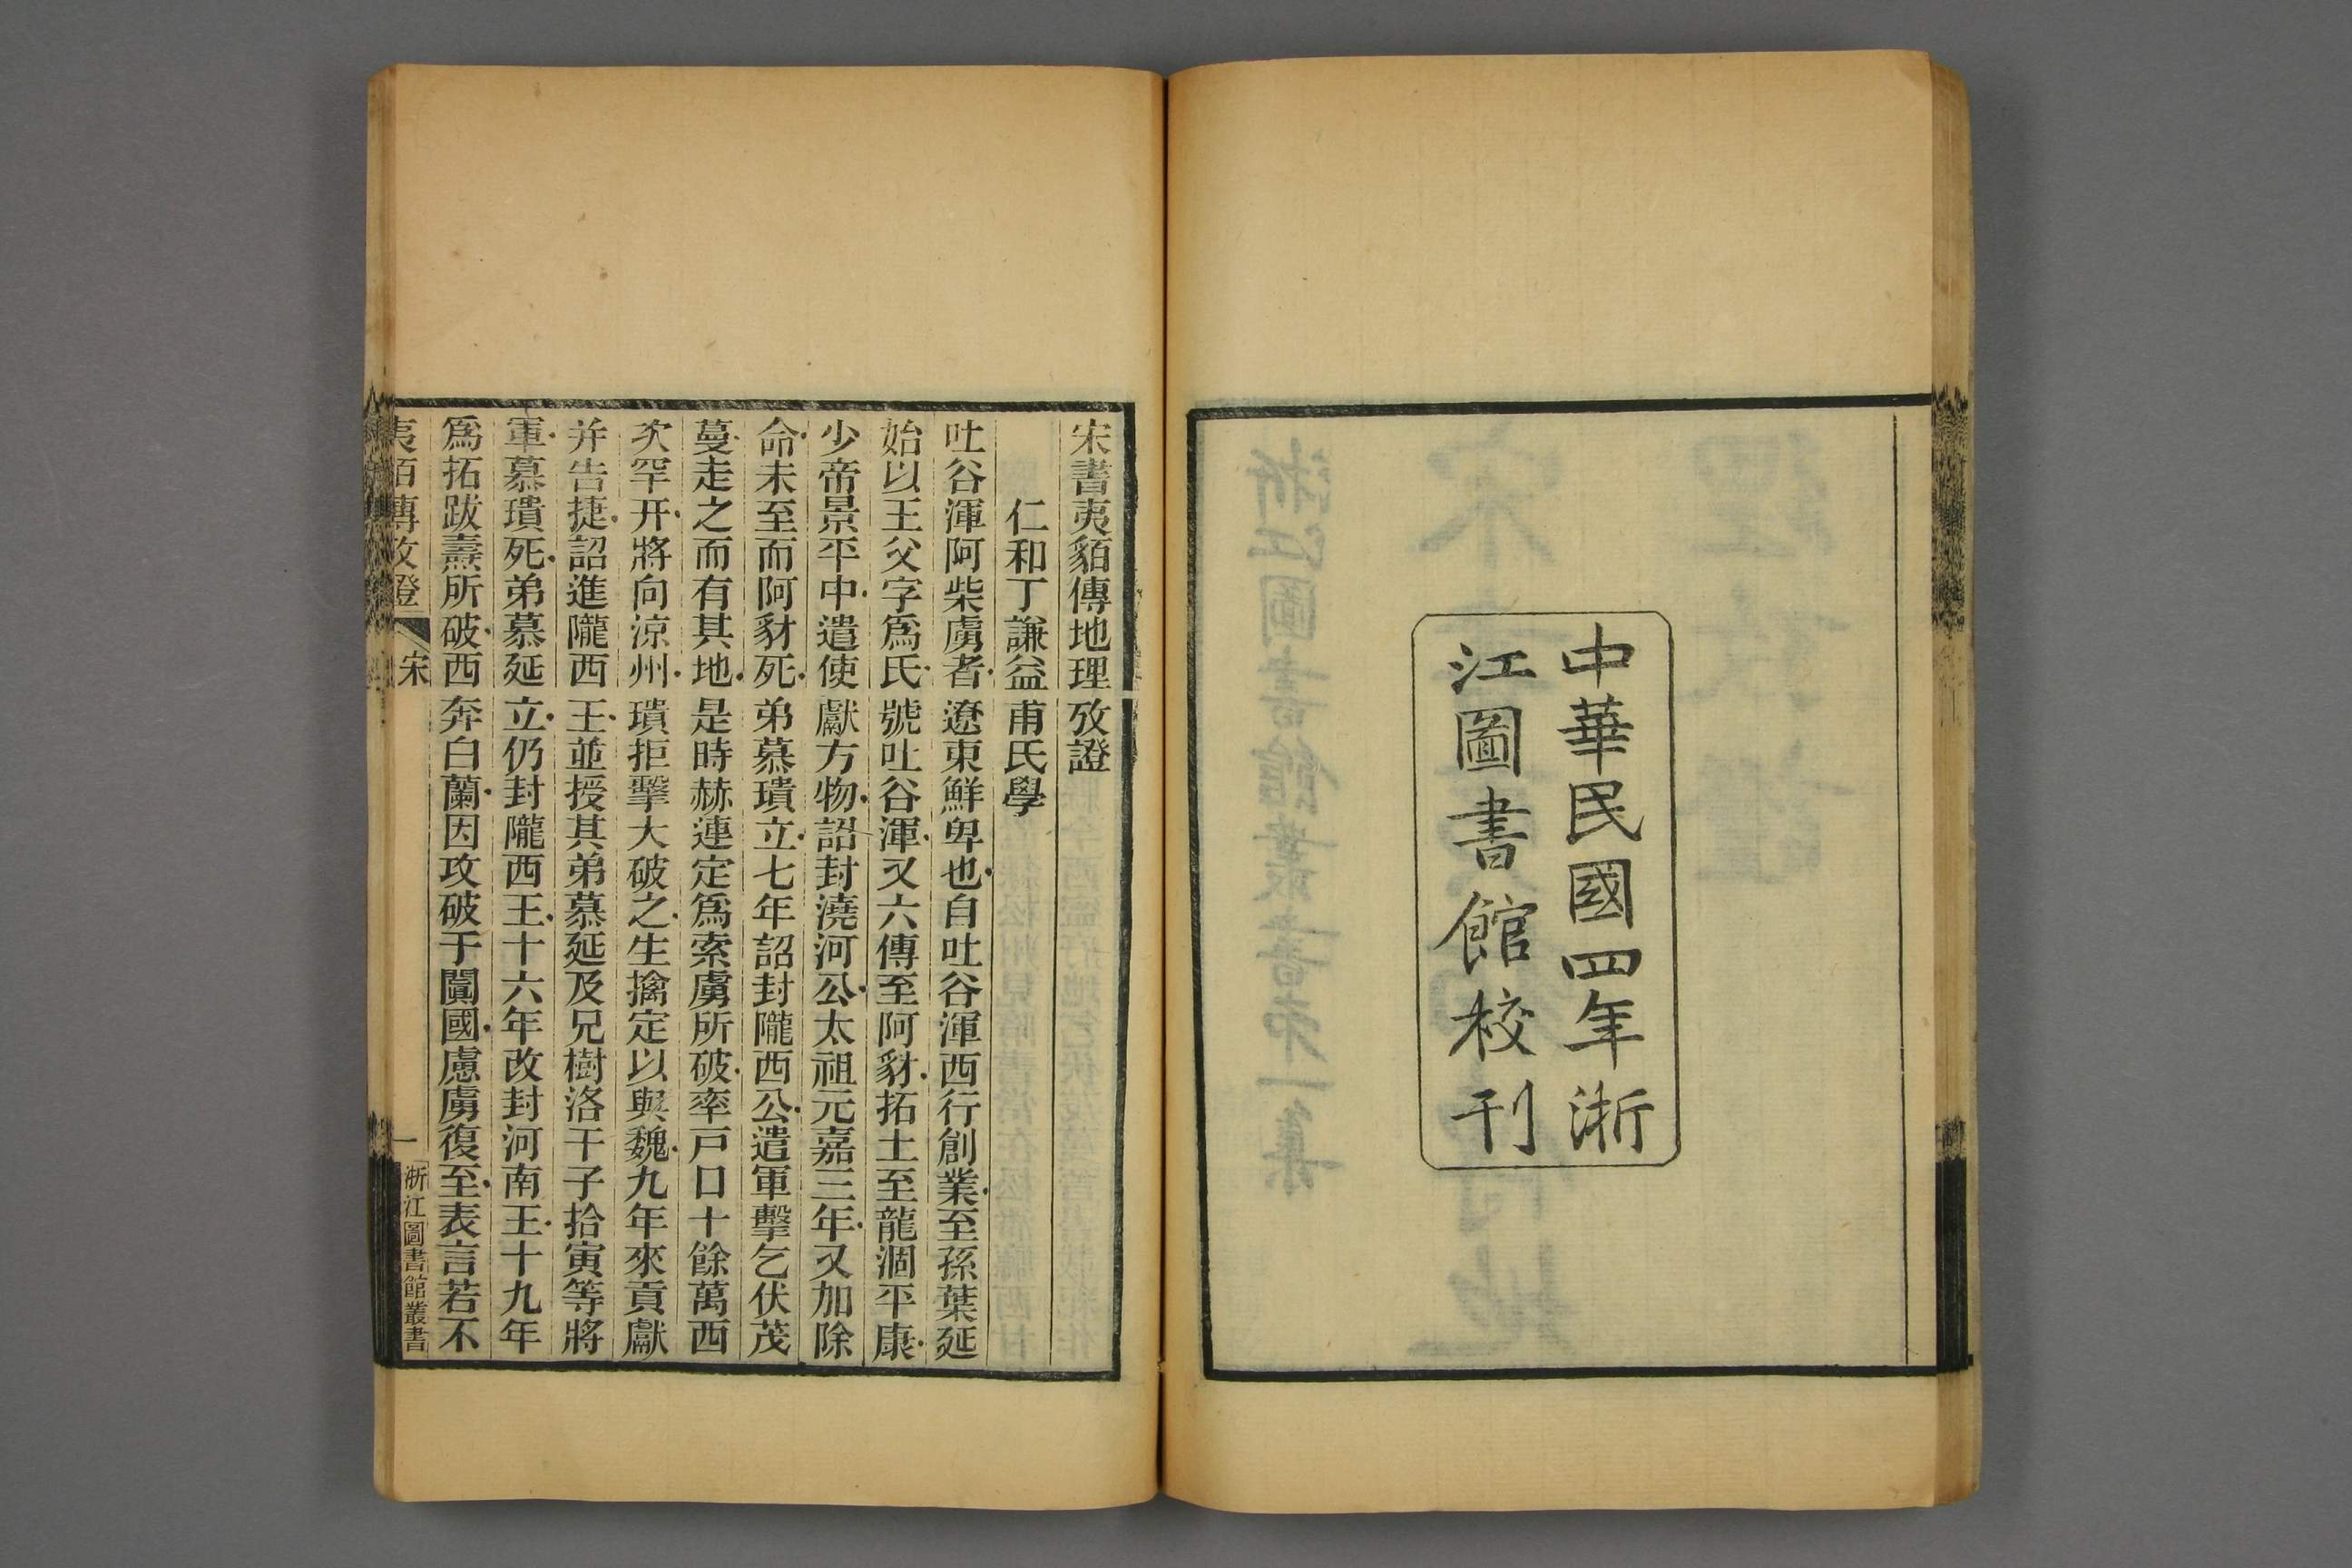 中華民國四年浙
江圖書館校刊
宋書夷貊傳地理攷證
仁和丁謙益甫氏學
吐谷渾阿柴虜者遼東鮮卑也自吐谷渾西行創業至孫葉延
始以王父字爲氏號吐谷渾又六傳至阿豺拓土至龍涸平康
少帝景平中遣使獻方物詔封澆河公太祖元嘉三年又加除
命未至而阿豺死弟慕璝立七年詔封隴西公遣軍擊乞伏茂
蔓走之而有其地是時赫連定爲索虜所破率戸口十餘萬西
次罕开將向涼州璝拒擊大破之生擒定以與魏九年來貢獻
并告捷詔進隴西王並授其弟慕延及兄樹洛干子拾寅等將
軍慕璝死弟慕延立仍封隴西王十六年改封河南王十九年
爲拓跋燾所破西奔白蘭因攻破于闐國慮虜復至表言若不
夷貊傳攷證 宋 一 浙江圖書館叢書